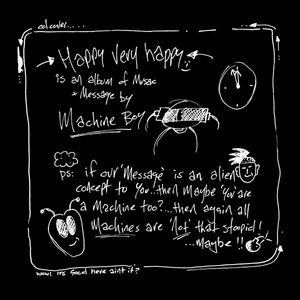 cd cover...
Happy very happy
is an album of Music
+ Message by
Machine Boy
ps: if our 'Message' is an alien
concept to You..then maybe 'You'are
a Machine too?...then again all
Machines are 'Not' that stoopid!
...Maybe!!
wow! its good here aint it?